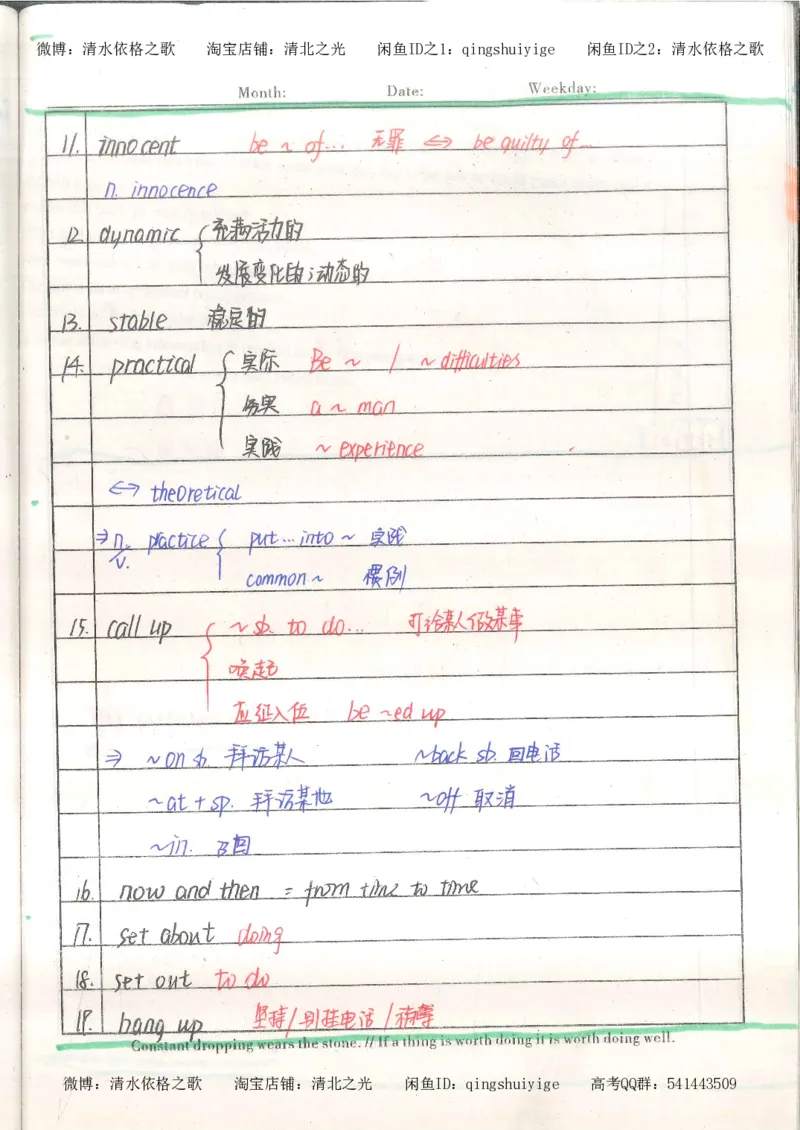 微博：清水依格之歌 淘宝店铺：清北之光 闲鱼ID之1：qingshuiyige 闲鱼ID之2：清水依格之歌
Month: Date: Weekday:
11. innocent be ~ of... 无罪 ⇔ be guilty of...
n. innocence
12 dynamic { 充满活力的
发展变化的；动态的
13. stable 稳定的
14. practical { 实际 Be ~ / ~ difficulties
务实 a ~ man
实践 ~ experience
↔ theoretical
⇒ n./v. practice { put...into ~ 实践
common ~ 惯例
15. call up { ~ sb. to do... 叮给某人做某事
唤起
应征入伍 be ~ed up
⇒ ~on sb. 拜访某人 ~back sb. 回电话
~at + sp. 拜访某地 ~off 取消
~in. 召回
16. now and then = from time to time
17. set about doing
18. set out to do
19. hang up 坚持/别挂电话/稍等
Constant dropping wears the stone. // If a thing is worth doing it is worth doing well.
微博：清水依格之歌 淘宝店铺：清北之光 闲鱼ID：qingshuiyige 高考QQ群：541443509